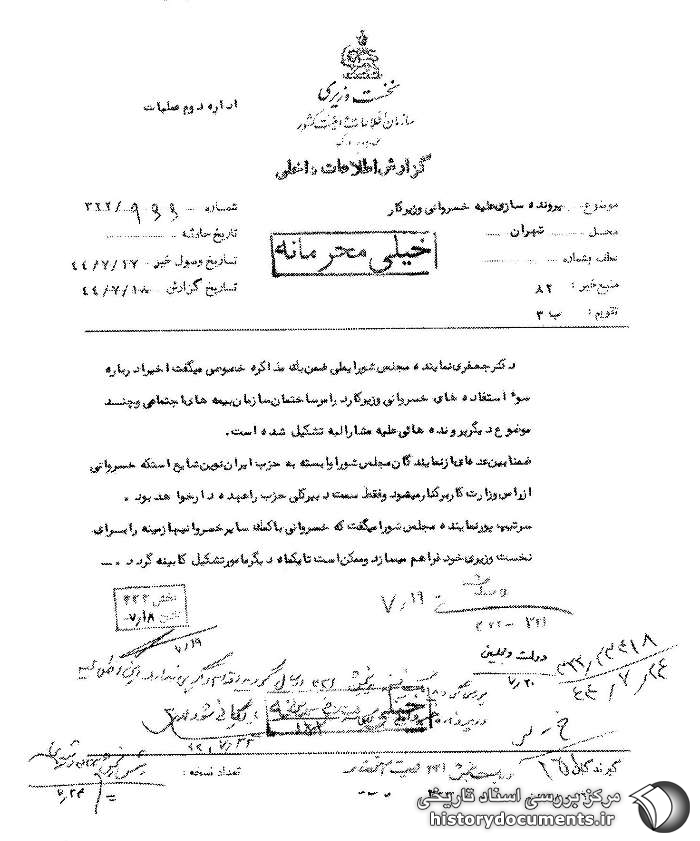 نخست وزیری
سازمان اطلاعات و امنیت کشور
اداره دوم عملیات
گزارش اطلاعات داخلی
موضوع پرونده سازی علیه خسروانی وزیر کار
شماره ۳۲۲/۹۳۳
محل تهران
تاریخ حادثه
خیلی محرمانه
عطف بشماره
تاریخ وصول خبر ۴۴/۷/۱۷
منبع خبر : ۸۲
تاریخ گزارش ۴۴/۷/۱۸
تقویم : ب ۳
دکتر جعفری نماینده مجلس شورایملی ضمن یک مذاکره خصوصی میگفت اخیرا درباره
سوء استفاده های خسروانی وزیر کار در امر ساختمان سازمان بیمه های اجتماعی و چند
موضوع دیگر پرونده هائی علیه مشارالیه تشکیل شده است.
ضمنا بین عده ای از نمایندگان مجلس شورا وابسته به حزب ایران نوین شایع است که خسروانی
از راس وزارت کار برکنار میشود و فقط سمت دبیر کلی حزب را عهده دار خواهد بود .
سرتیپ پور نماینده مجلس شورا میگفت که خسروانی با کمک سایر خسروانیها زمینه را برای
نخست وزیری خود فراهم میسازد و ممکن است تا یکماه دیگر مامور تشکیل کابینه گردد .
بخش ۳۲۲
۷/۱۸
۷/۱۹
۷/۱۹
۳۲۱ - ۳۲۲
دولت و مجلسین
۷/۲۰
۴۴/۷/۲۴
خیلی محرمانه
گیرندگان
تعداد نسخه :
۷/۲۴
مرکز بررسی اسناد تاریخی
historydocuments.ir